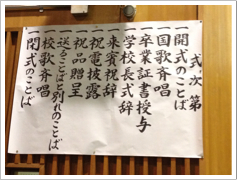 式次第
一開式のことば
一国歌斉唱
一卒業証書授与
一学校長式辞
一来賓祝辞
一祝電披露
一祝品贈呈
一送ることばと別れのことば
一校歌斉唱
一閉式のことば